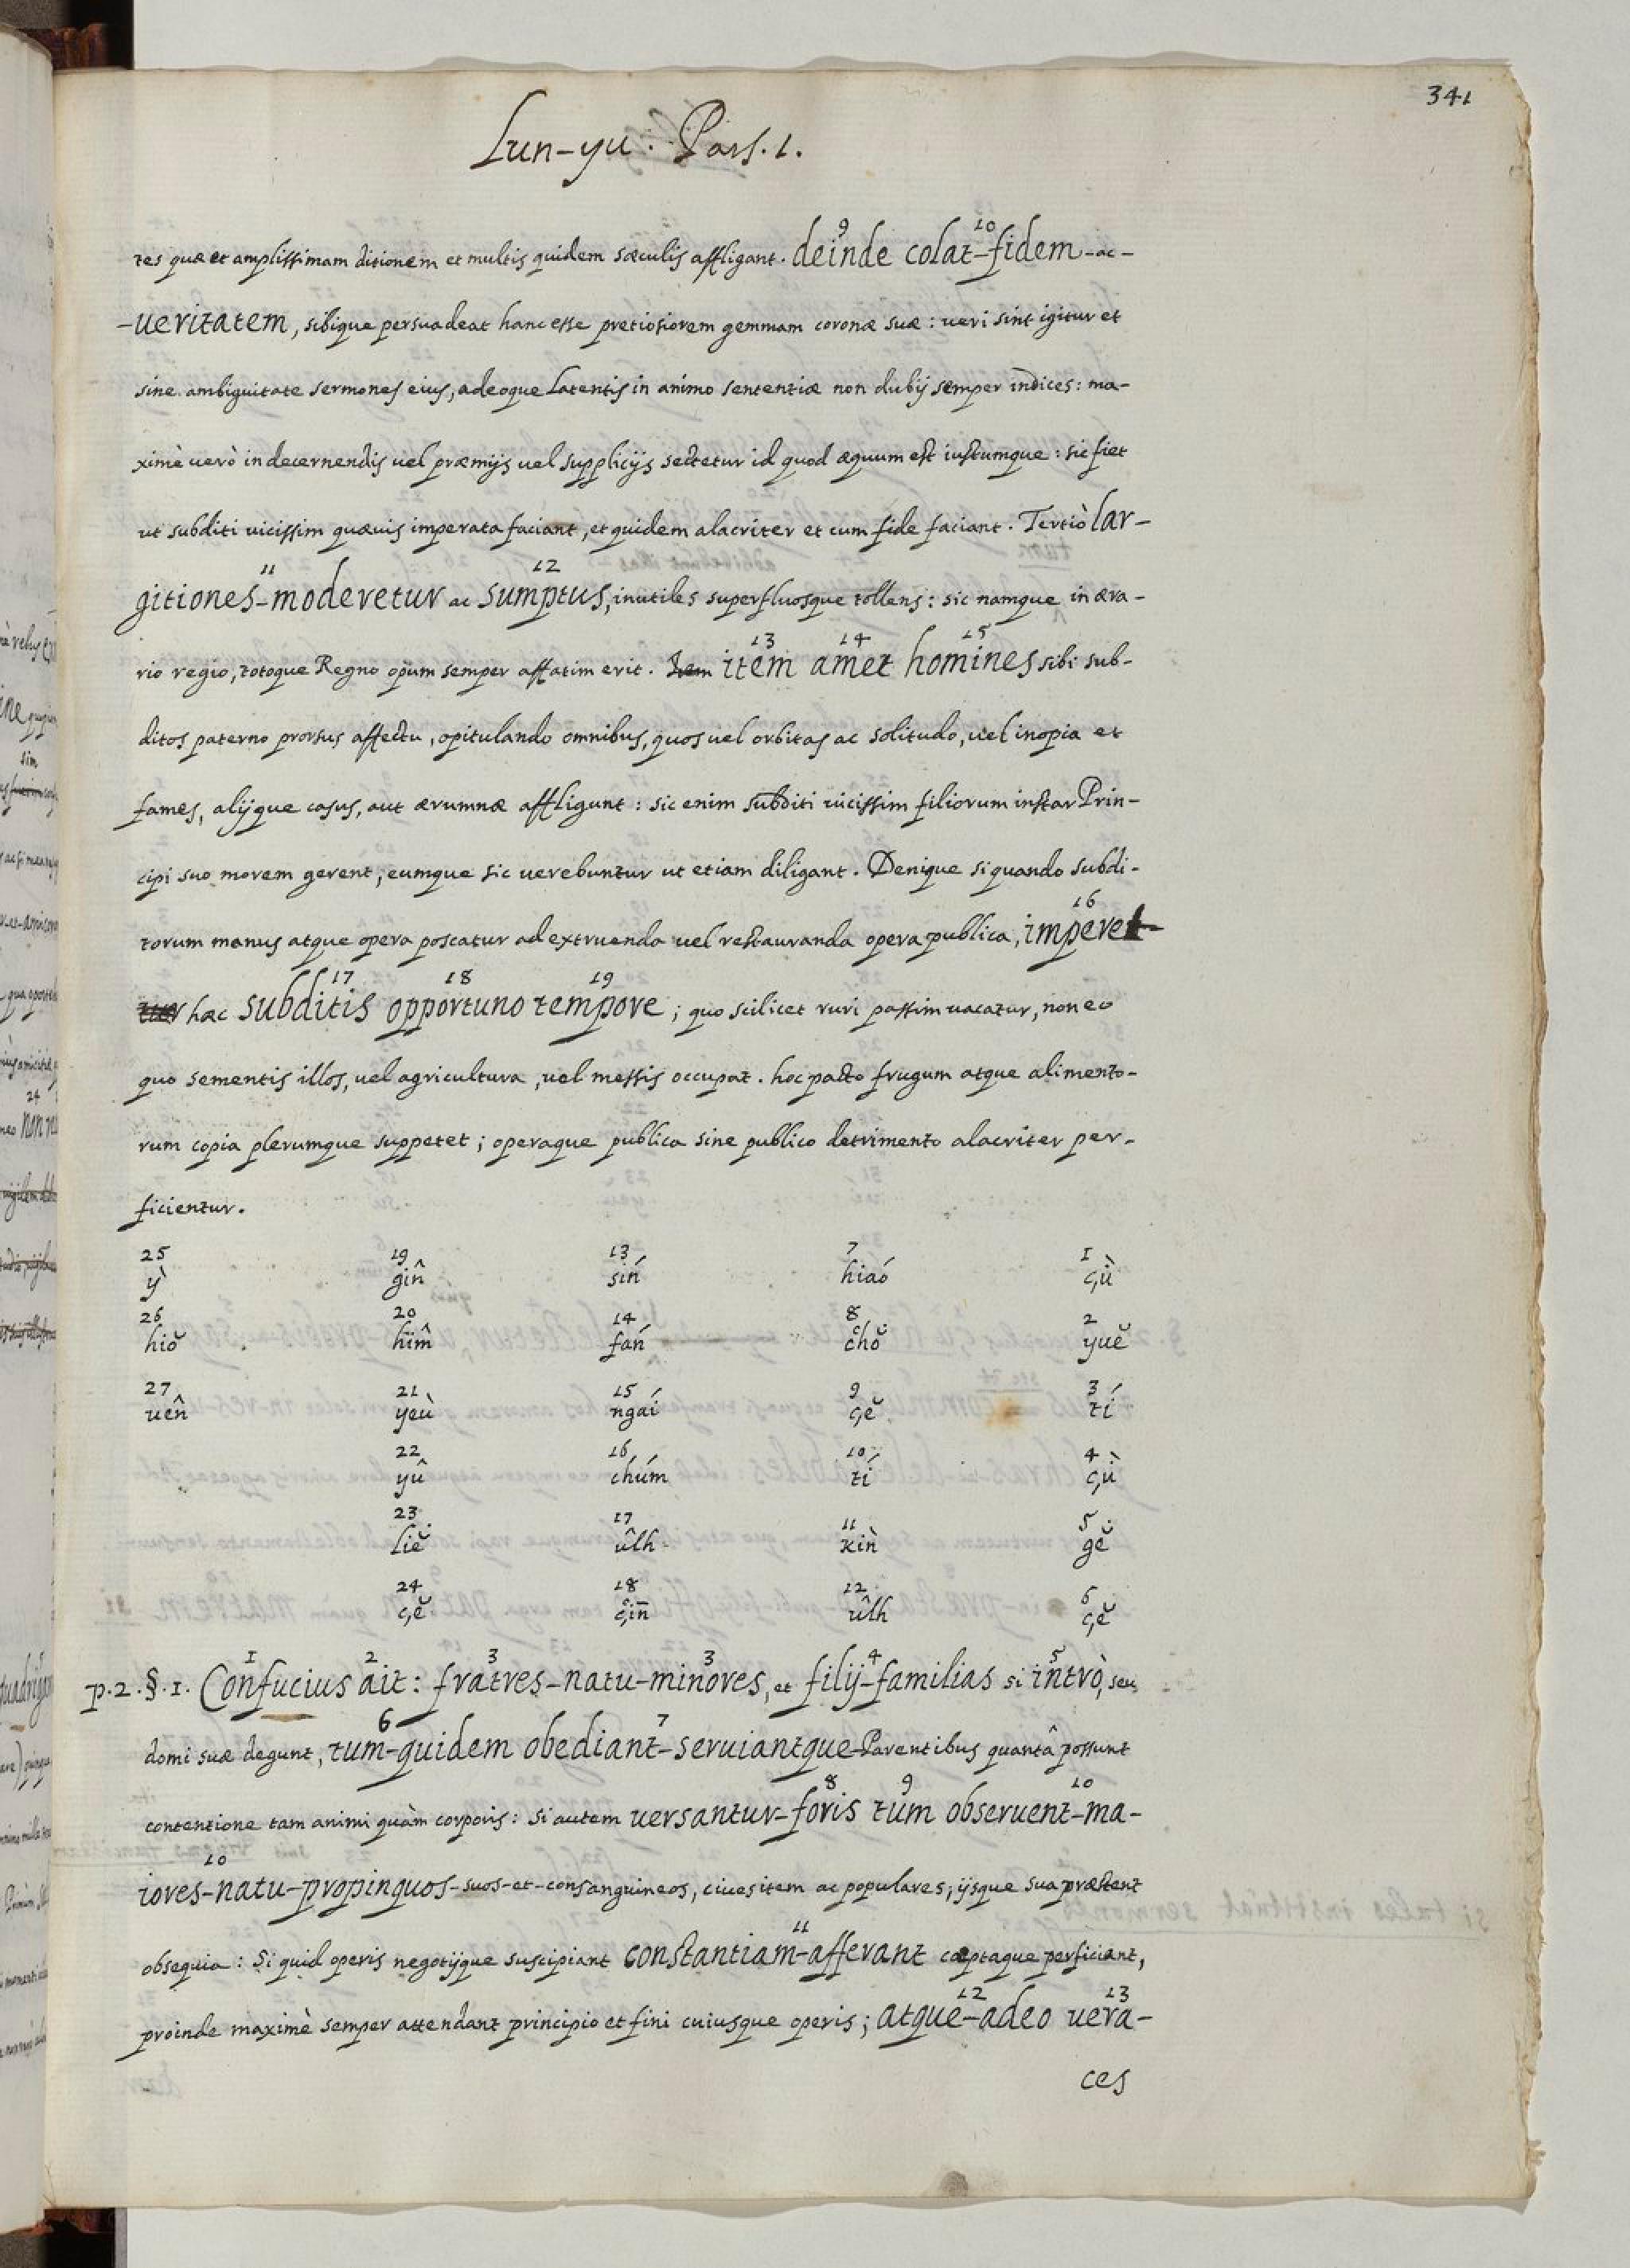 341
Lun-yu: Pars. 1.
9 10
tes quæ et amplissimam ditionem et multis quidem sæculis affligant. deinde colat-fidem-ac-
-ueritatem, sibique persuadeat hanc esse pretiosiorem gemmam coronæ suæ: ueri sint igitur et
sine ambiguitate sermones eius, adeoque latentis in animo sententiæ non dubij semper indices: ma-
ximè uerò in decernendis uel præmijs uel supplicijs sectetur id quod æquum est iustumque: sic fiet
ut subditi uicissim quæuis imperata faciant, et quidem alacriter et cum fide faciant. Tertiò lar-
11 12
gitiones-moderetur ac sumptus, inutiles superfluosque tollens: sic namque in æra-
13 14 15
rio regio, totoque Regno opum semper affatim erit. item amet homines sibi sub-
ditos paterno prorsus affectu, opitulando omnibus, quos uel orbitas ac solitudo, uel inopia et
fames, alijque casus, aut ærumnæ affligunt: sic enim subditi uicissim filiorum instar Prin-
cipi suo morem gerent, eumque sic uerebuntur ut etiam diligant. Denique si quando subdi-
16
torum manus atque opera poscatur ad extruenda uel restauranda opera publica, imperet
17 18 19
hæc subditis opportuno tempore; quo scilicet ruri passim uacatur, non eo
quo sementis illos, uel agricultura, uel messis occupat. hoc pacto frugum atque alimento-
rum copia plerumque suppetet; operaque publica sine publico detrimento alacriter per-
ficientur.
25 19 13 7 1
ỳ gin̂ siń hiaó çù
26 20 14 8 2
hiŏ him̂ fań chŏ yuĕ
27 21 15 9 3
uên yeù ngaí çĕ tí
22 16 10 4
yû chúm tí çù
23 17 11 5
liĕ ûlh kiǹ gĕ
24 18 12 6
çĕ çin̄ ûlh çĕ
1 2 3 3 4 5
p. 2. §. 1. Confucius ait: fratres-natu-minores, et filij-familias si intrò, seu
6 7
domi suæ degunt, tum-quidem obediant-seruiantque-Parentibus quantâ possunt
8 9 10
contentione tam animi quàm corporis: si autem uersantur-foris tum obseruent-ma-
10
iores-natu-propinquos-suos-et-consanguineos, ciues item ac populares; ijsque sua præstent
11
obsequia: Si quid operis negotijque suscipiant constantiam-afferant cæptaque perficiant,
12 13
proinde maximè semper attendant principio et fini cuiusque operis; atque-adeo uera-
ces